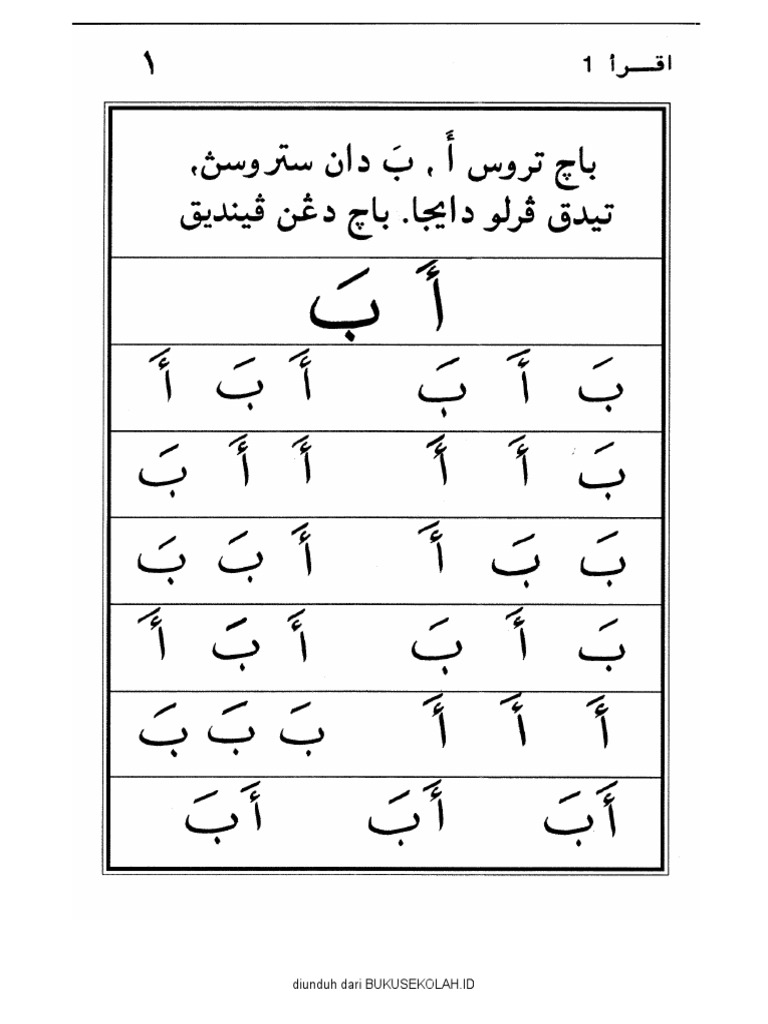 اقـــرأ 1 ١
باچ تروس أَ , بَ دان ستروسڽ,
تيدق ڤرلو دايجا. باچ دڠن ڤينديق
أَ بَ
بَ أَ بَ أَ بَ أَ
بَ أَ أَ أَ أَ بَ
بَ بَ أَ أَ بَ بَ
بَ أَ بَ أَ بَ أَ
أَ أَ أَ بَ بَ بَ
أَبَ أَبَ أَبَ
diunduh dari BUKUSEKOLAH.ID